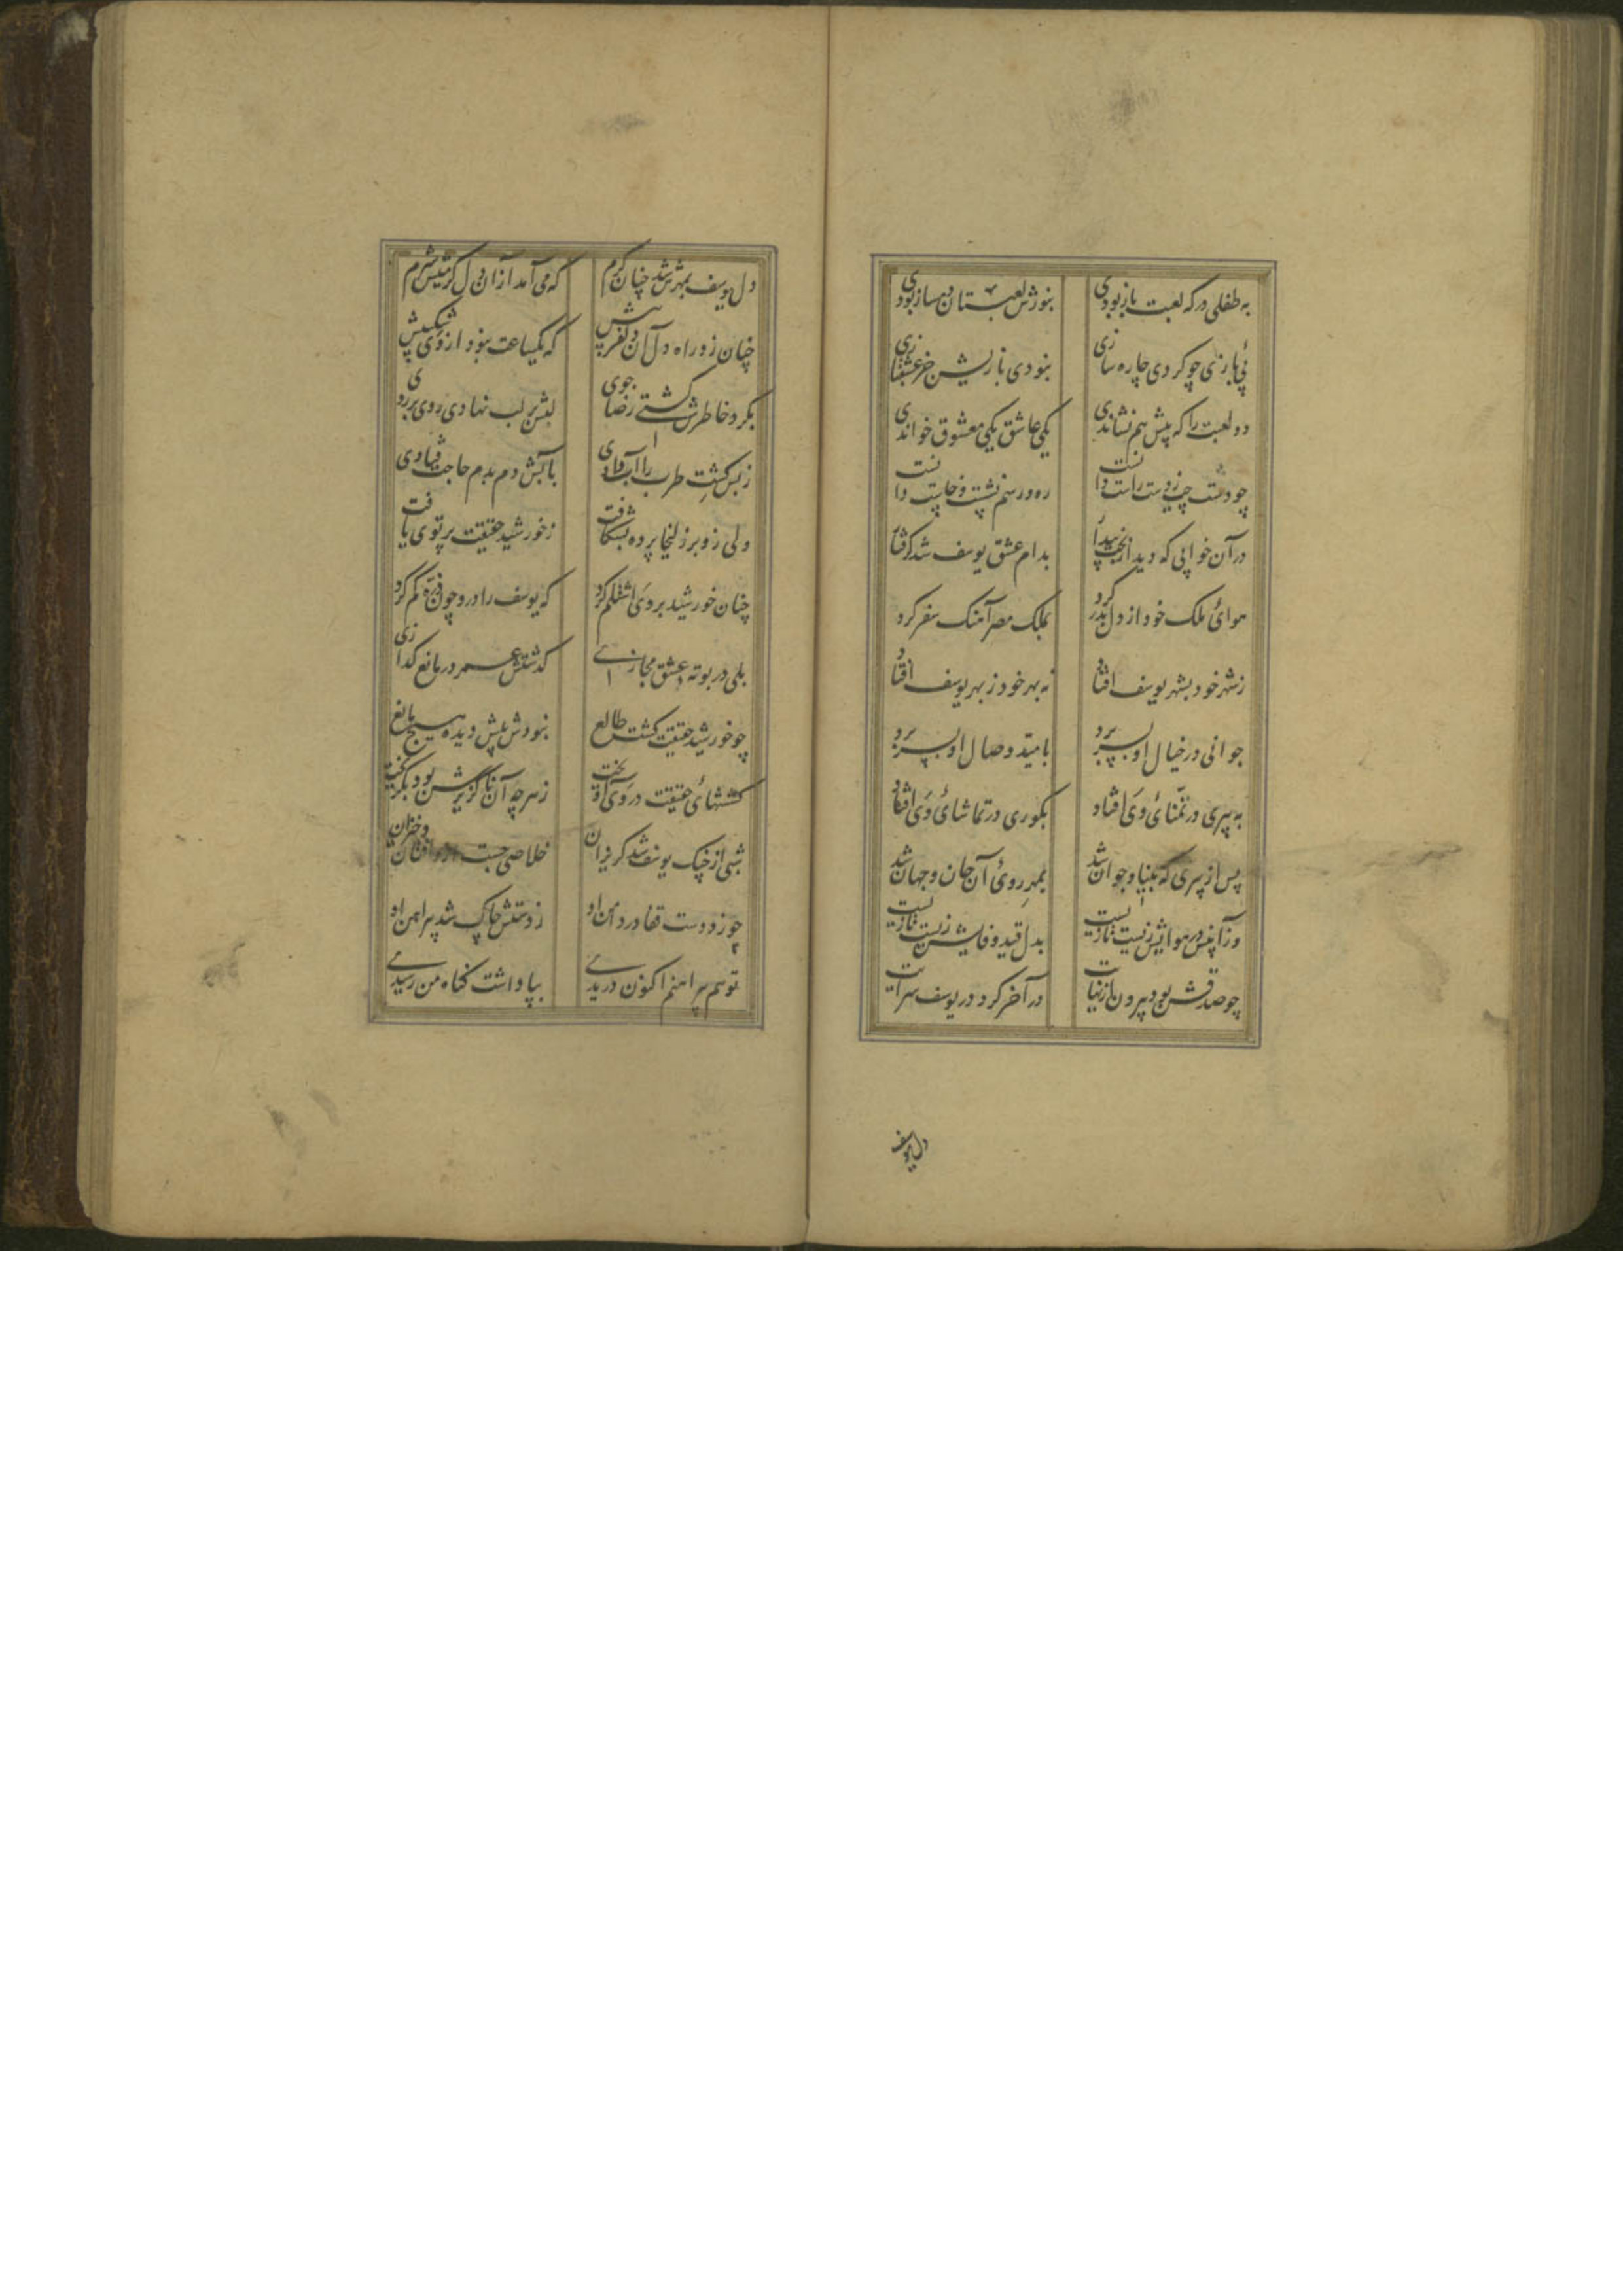 به طفلی در که لعبت باز بودی بنوزش لعبتان دمساز بودی
پی بازی چو کردی چاره سازی نبودی بازیش جز عشقبازی
دو لعبت را که پیش هم نشاندی یکی عاشق یکی معشوق خواندی
چو دست چپ ز دست راست دانست ره و رسم نشست و خاست دانست
در آن خوابی که دید از بخت بیدار بدام عشق یوسف شد گرفتار
هوای ملک خود از دل بدر کرد بملک مصر آهنک سفر کرد
ز شهر خود بشهر یوسف افتاد نه بهر خود ز بهر یوسف افتاد
جوانی در خیال او بسر برد بامید وصال او بسر برد
به پیری در تمنائ وی افتاد بکوری در تماشائ وی افتاد
پس از پیری که بینا و جوان شد بمهر روئ آن جان و جهان شد
وز آن پس در هوایش زیست تا زیست بدل قید وفایش زیست تا زیست
چو صدقش بود بیرون از نهایت در آخر کرد در یوسف سرایت
دل یوسف
دل یوسف بمهرش شد چنان گرم که می آمد از آن دل گرمیش شرم
چنان زو راه دل آن دلفریبش که یکساعت نبود از وی شکیبش
بگرد خاطرش گشتے رضا جوی لبش بر لب نهادی روی بر روی
ز بس کشت طرب را آب دادی بآبش دم بدم حاجت فتادی
ولی زو بر زلیخا پرده بشکافت ز خورشید حقیقت پرتوی یافت
چنان خورشید بر وی اشتلم کرد که یوسف را درو چون ذره گم کرد
بلی در بوته عشق مجازے گذشتش عمر در مانع گدازی
چو خورشید حقیقت گشت طالع نبودش پیش دیده هیچ مانع
کششهائ حقیقت در وی آویخت ز هر چه آن ناگزیرش بود بگریخت
شبی از چنک یوسف شد گریزان خلاصی جست ازو افتان و خیزان
چو زد دست قفا در دامن او ز دستش چاک شد پیراهن او
تو هم پیراهنم اکنون دریدے بپاداشت گناه من رسیدے